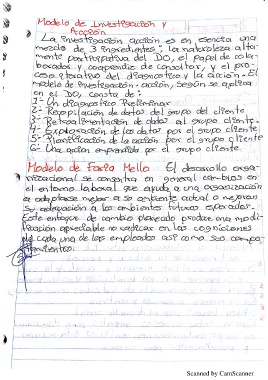 Modelo de Investigación y
Acción
La investigación acción es en esencia una
mezcla de 3 ingredientes: la naturaleza alta-
mente participativa del DO, el papel de cola-
borador y coaprendiz de consultor, y el pro-
ceso iterativo del diagnostico y la acción. El
modelo de investigación-acción, según se aplica
en el DO, consta de:
1- Un diagnostico Preliminar
2- Recopilación de datos del grupo del cliente
3- Retroalimentación de datos al grupo cliente.
4- Exploración de los datos por el grupo cliente
5- Planificación de la acción por el grupo cliente
6- Una acción emprendida por el grupo cliente.
Modelo de Faria Mello El desarrollo orga-
nizacional se concentra en general cambios en
el entorno laboral que ayuda a una organización
a adaptarse mejor a su ambiente actual o mejorar
su adecuación a los ambientes futuros esperados.
Este enfoque de cambio planeado produce una modi-
ficación apreciable no radicar en las cogniciones
de cada uno de los empleados asi como sus compor-
tamientos.
Scanned by CamScanner